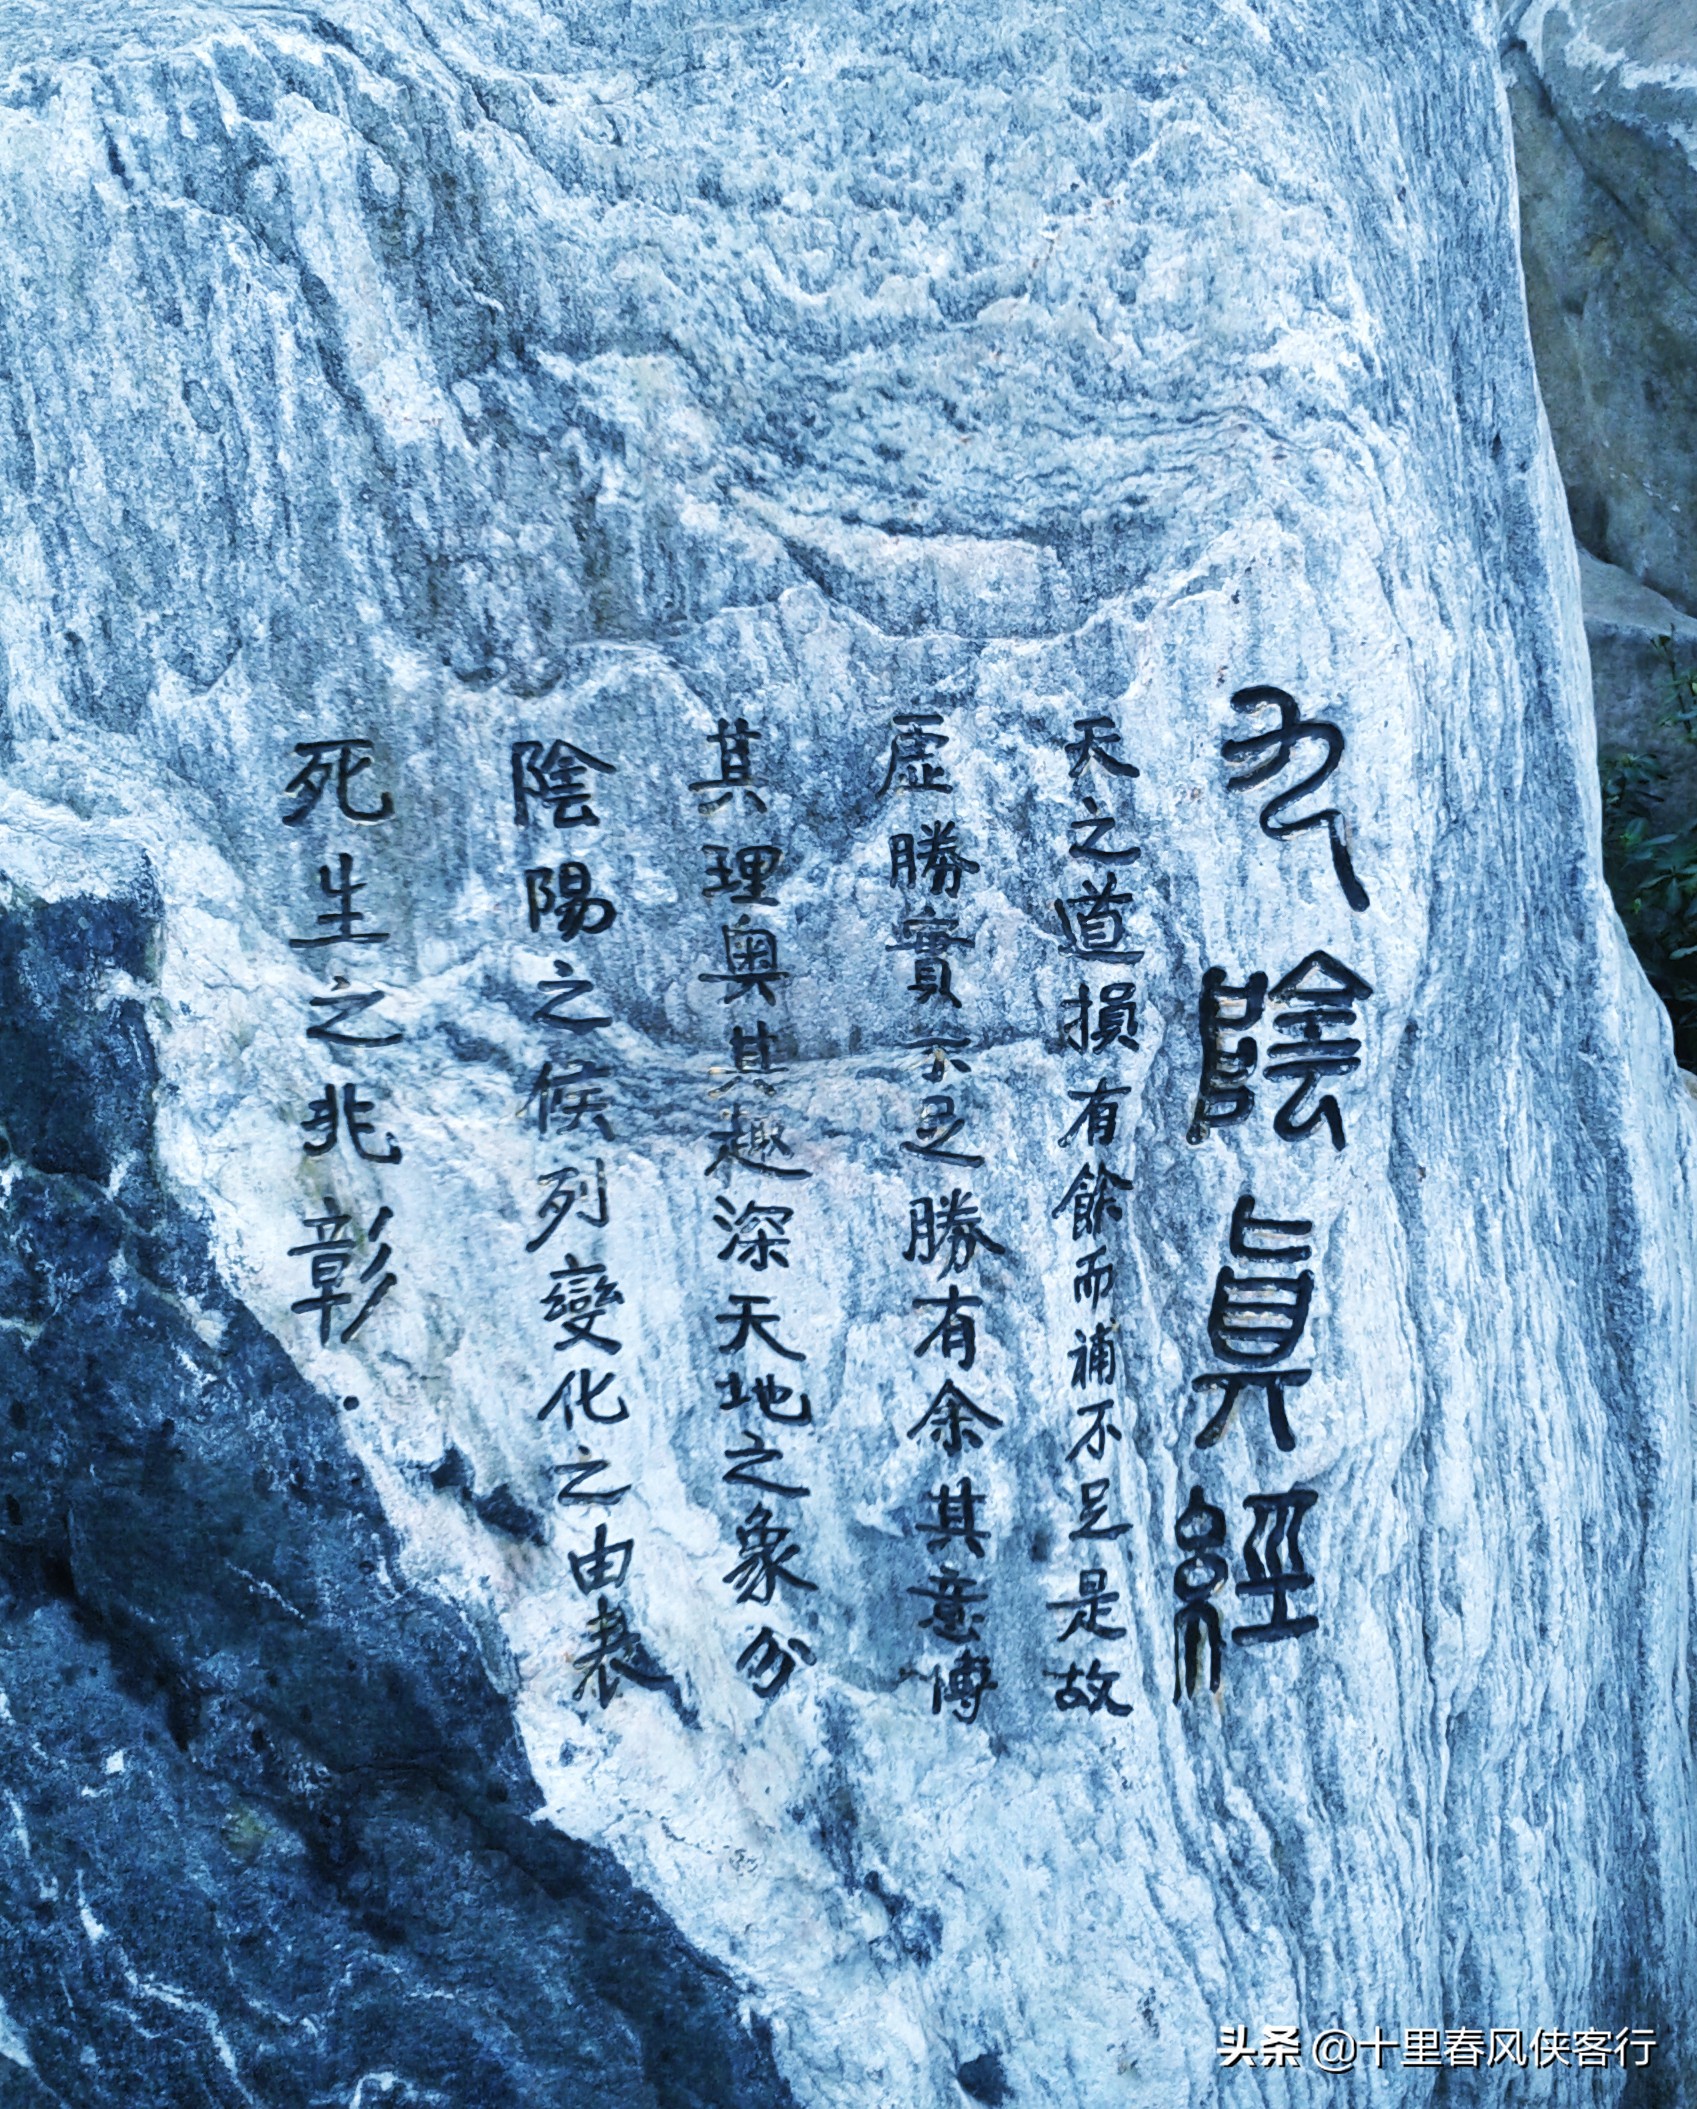 九陰真經
天之道損有餘而補不足是故
虛勝實不足勝有余其意博
其理奧其趣深天地之象分
陰陽之候列變化之由表
死生之兆彰.
头条 @十里春风侠客行